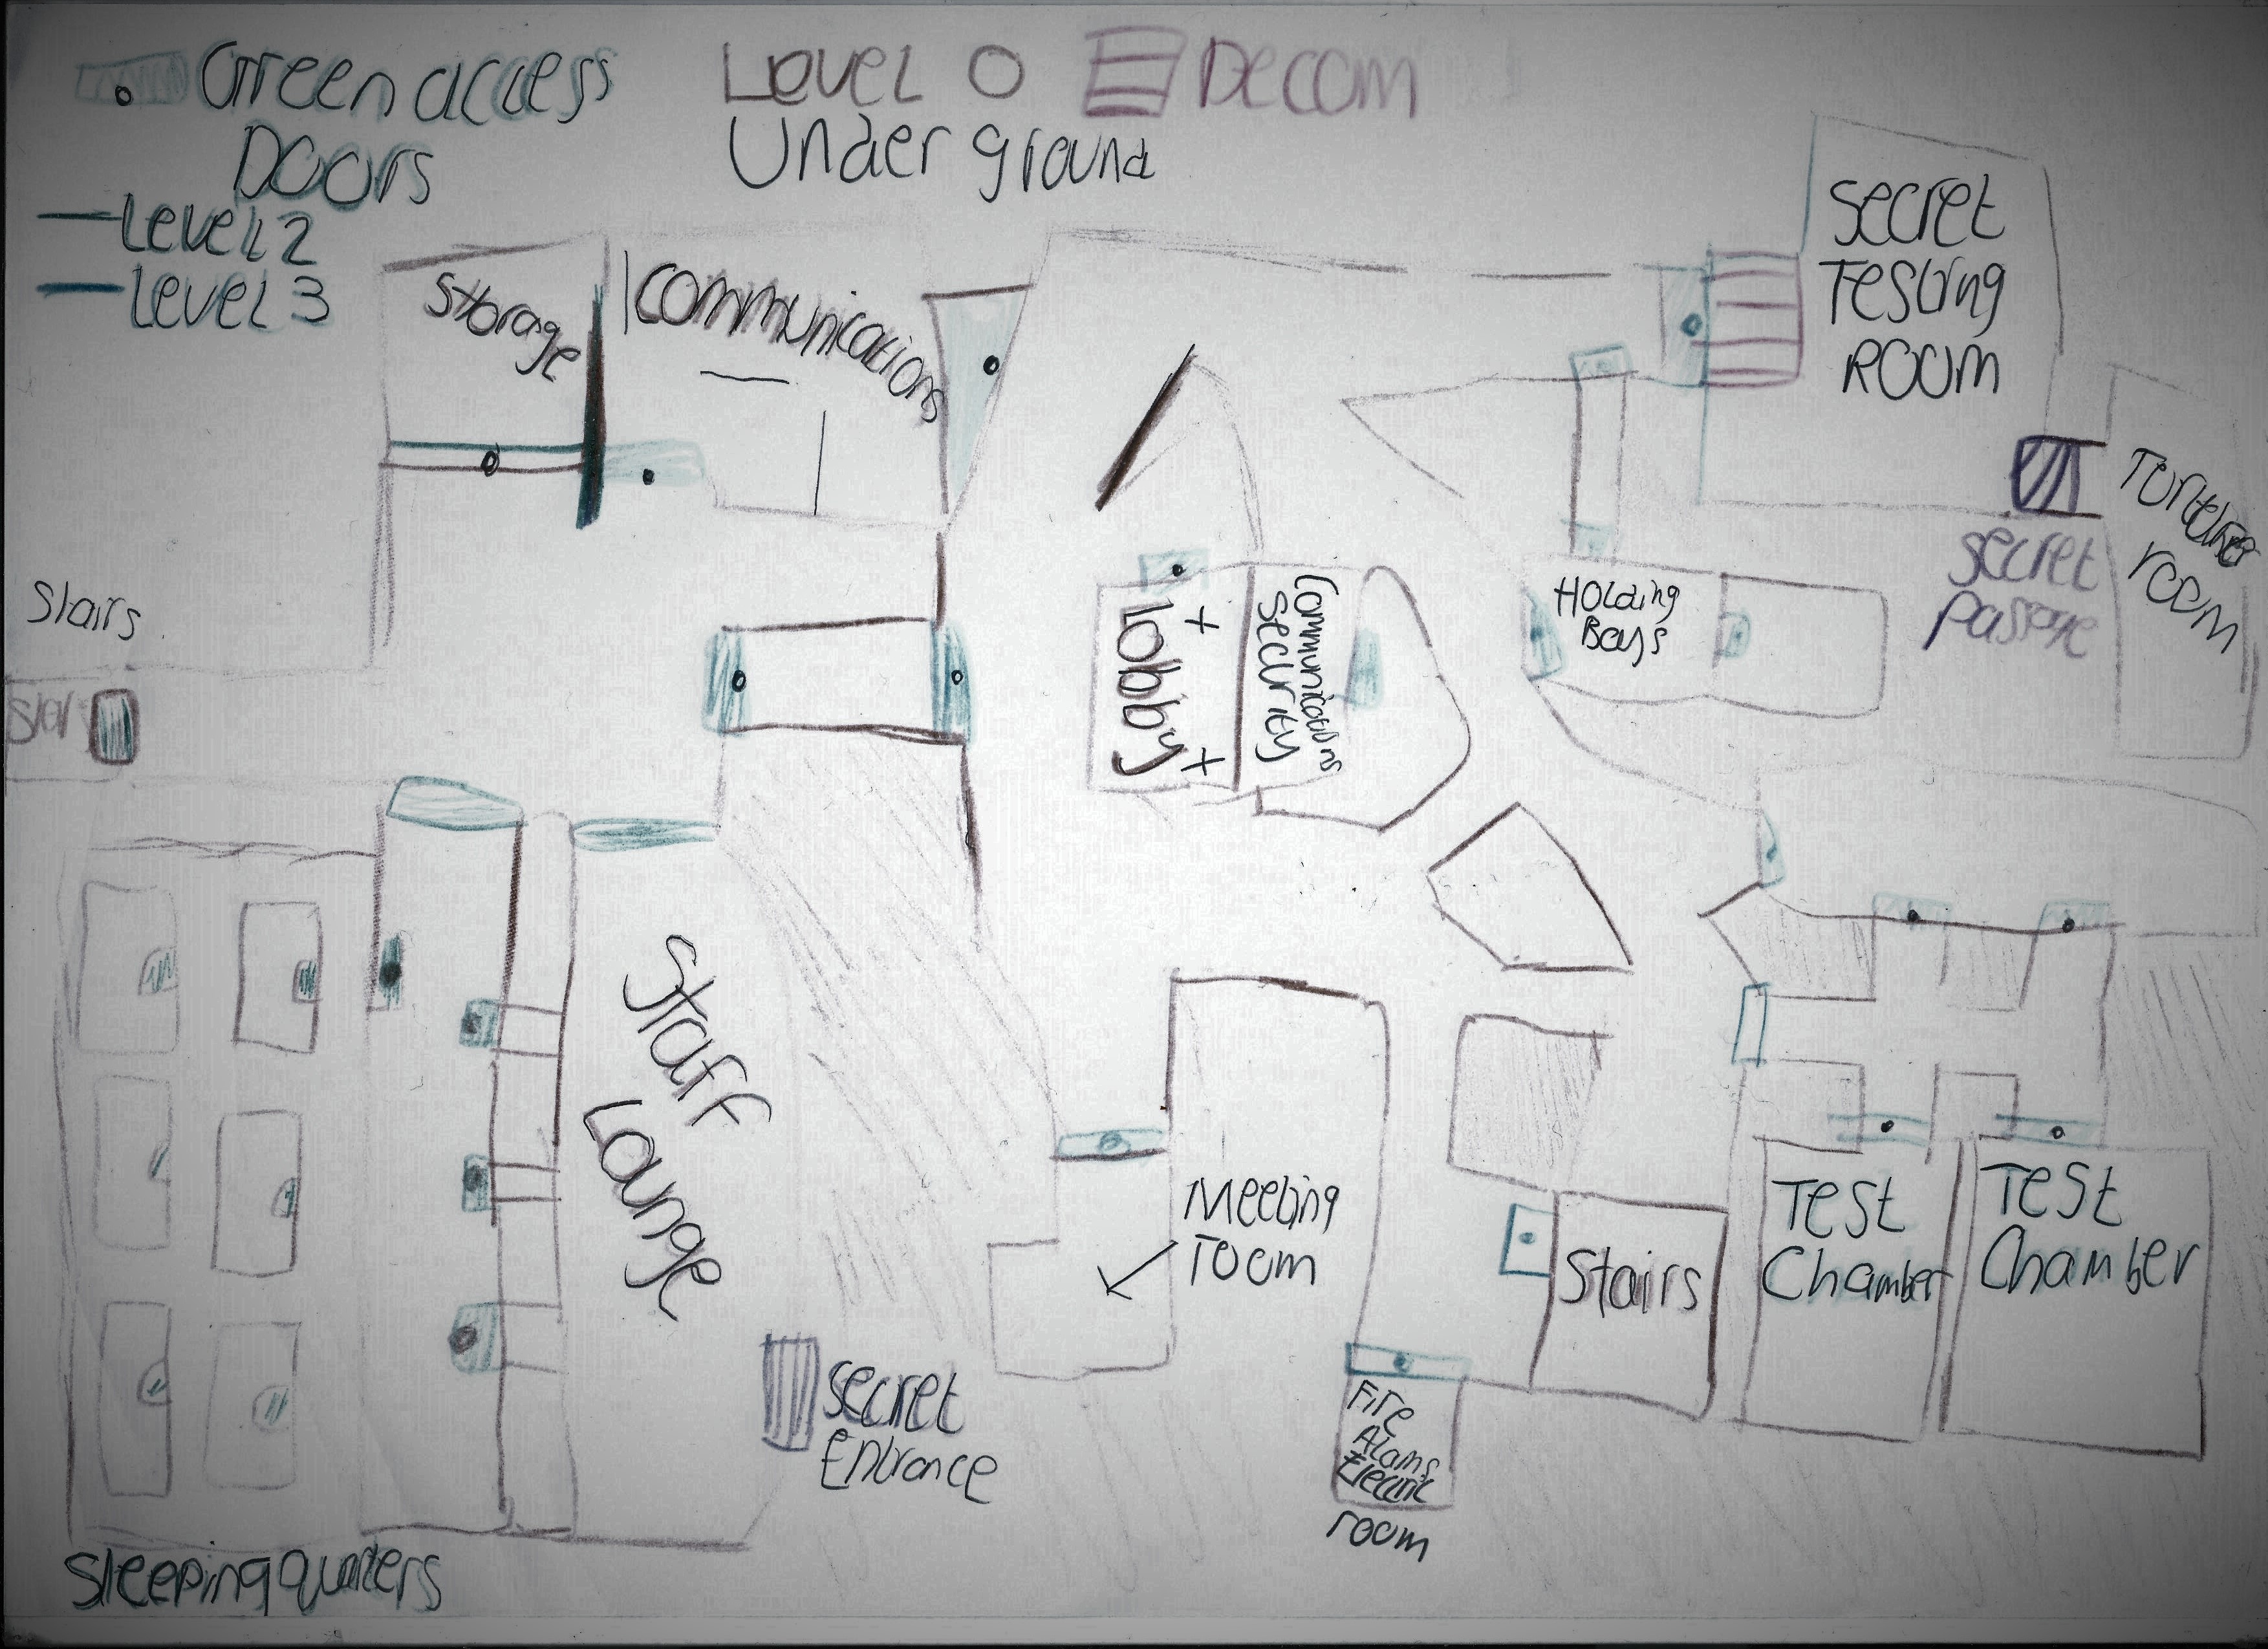 Green access
Doors
Level 2
Level 3
Level 0
Underground
Decom
Storage
Communications
Secret
Testing
Room
Torture
room
Secret
Passage
Stairs
Stair
Lobby
Communications
Security
Holding
Bays
Staff
Lounge
Meeting
room
Stairs
Test
Chamber
Test
Chamber
Secret
Entrance
Fire
Alams
Electric
room
Sleeping quarters